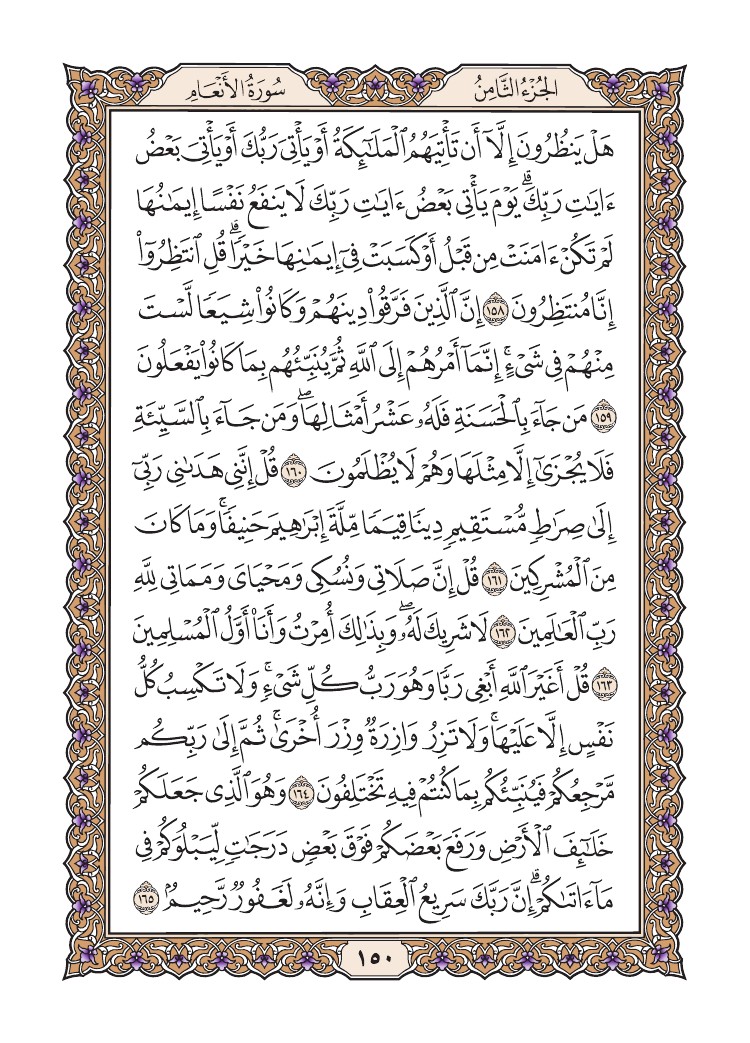 الجُزْءُ الثَّامِنُ
سُورَةُ الأَنْعَامِ
هَلْ يَنظُرُونَ إِلَّآ أَن تَأْتِيَهُمُ ٱلْمَلَٰٓئِكَةُ أَوْ يَأْتِىَ رَبُّكَ أَوْ يَأْتِىَ بَعْضُ
ءَايَٰتِ رَبِّكَۗ يَوْمَ يَأْتِى بَعْضُ ءَايَٰتِ رَبِّكَ لَا يَنفَعُ نَفْسًا إِيمَٰنُهَا
لَمْ تَكُنْ ءَامَنَتْ مِن قَبْلُ أَوْ كَسَبَتْ فِىٓ إِيمَٰنِهَا خَيْرًاۗ قُلِ ٱنتَظِرُوٓا۟
إِنَّا مُنتَظِرُونَ ١٥٨ إِنَّ ٱلَّذِينَ فَرَّقُوا۟ دِينَهُمْ وَكَانُوا۟ شِيَعًا لَّسْتَ
مِنْهُمْ فِى شَىْءٍۚ إِنَّمَآ أَمْرُهُمْ إِلَى ٱللَّهِ ثُمَّ يُنَبِّئُهُم بِمَا كَانُوا۟ يَفْعَلُونَ
١٥٩ مَن جَآءَ بِٱلْحَسَنَةِ فَلَهُۥ عَشْرُ أَمْثَالِهَاۖ وَمَن جَآءَ بِٱلسَّيِّئَةِ
فَلَا يُجْزَىٰٓ إِلَّا مِثْلَهَا وَهُمْ لَا يُظْلَمُونَ ١٦٠ قُلْ إِنَّنِى هَدَىٰنِى رَبِّىٓ
إِلَىٰ صِرَٰطٍ مُّسْتَقِيمٍ دِينًا قِيَمًا مِّلَّةَ إِبْرَٰهِيمَ حَنِيفًاۚ وَمَا كَانَ
مِنَ ٱلْمُشْرِكِينَ ١٦١ قُلْ إِنَّ صَلَاتِى وَنُسُكِى وَمَحْيَاىَ وَمَمَاتِى لِلَّهِ
رَبِّ ٱلْعَٰلَمِينَ ١٦٢ لَا شَرِيكَ لَهُۥۖ وَبِذَٰلِكَ أُمِرْتُ وَأَنَا۠ أَوَّلُ ٱلْمُسْلِمِينَ
١٦٣ قُلْ أَغَيْرَ ٱللَّهِ أَبْغِى رَبًّا وَهُوَ رَبُّ كُلِّ شَىْءٍۚ وَلَا تَكْسِبُ كُلُّ
نَفْسٍ إِلَّا عَلَيْهَاۚ وَلَا تَزِرُ وَازِرَةٌ وِزْرَ أُخْرَىٰۚ ثُمَّ إِلَىٰ رَبِّكُم
مَّرْجِعُكُمْ فَيُنَبِّئُكُم بِمَا كُنتُمْ فِيهِ تَخْتَلِفُونَ ١٦٤ وَهُوَ ٱلَّذِى جَعَلَكُمْ
خَلَٰٓئِفَ ٱلْأَرْضِ وَرَفَعَ بَعْضَكُمْ فَوْقَ بَعْضٍ دَرَجَٰتٍ لِّيَبْلُوَكُمْ فِى
مَآ ءَاتَىٰكُمْۗ إِنَّ رَبَّكَ سَرِيعُ ٱلْعِقَابِ وَإِنَّهُۥ لَغَفُورٌ رَّحِيمٌۢ ١٦٥
١٥٠